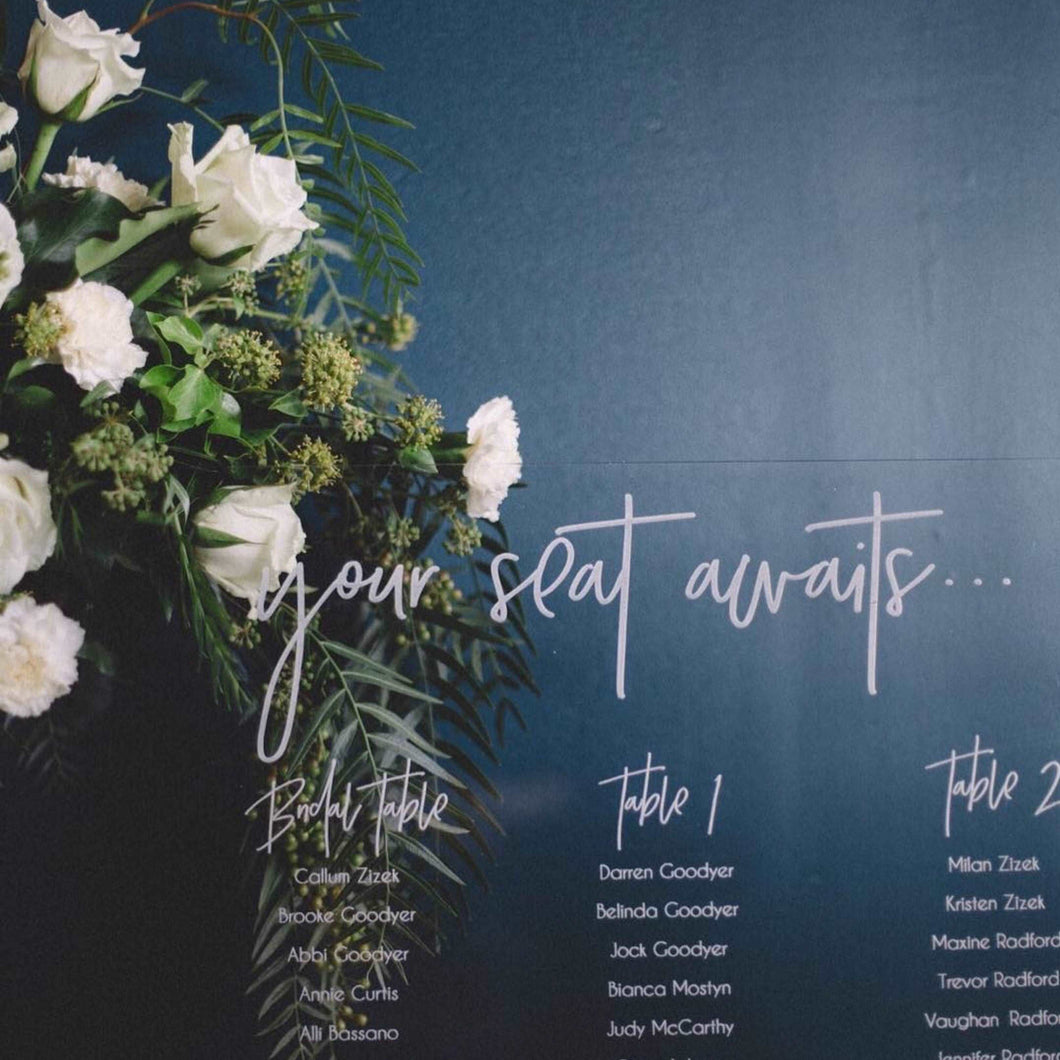 your seat awaits...
Bridal Table
Callum Zizek
Brooke Goodyer
Abbi Goodyer
Annie Curtis
Alli Bassano
Table 1
Darren Goodyer
Belinda Goodyer
Jock Goodyer
Bianca Mostyn
Judy McCarthy
Table 2
Milan Zizek
Kristen Zizek
Maxine Radford
Trevor Radford
Vaughan Radfor
Jennifer Radfor